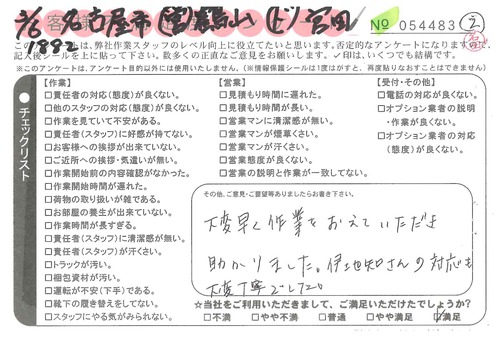 2/6 名古屋市
1892
No 054483
このアンケートは、弊社作業スタッフのレベル向上に役立てたいと思います。否定的なアンケートになりますので、
記入後シールを上に貼って下さい。数多くの正直なご意見をお願いします。✓印は、いくつでも結構です。
※このアンケートは、アンケート目的以外には使用いたしません。(※情報保護シールは1度はがすと、再度貼りなおすことはできません)
チェックリスト
【作業】
□責任者の対応(態度)が良くない。
□他のスタッフの対応(態度)が良くない。
□作業を見ていて不安がある。
□責任者(スタッフ)に好感が持てない。
□お客様への挨拶が出来ていない。
□ご近所への挨拶・気遣いが無い。
□作業開始前の内容確認がなかった。
□作業開始時間が遅れた。
□荷物の取り扱いが雑である。
□お部屋の養生が出来ていない。
□作業時間が長すぎる。
□責任者(スタッフ)に清潔感が無い。
□責任者(スタッフ)が汗くさい。
□トラックが汚い。
□梱包資材が汚い。
□運転が不安(下手)である。
□靴下の履き替えをしてない。
□スタッフにやる気がみられない。
【営業】
□見積もり時間に遅れた。
□見積もり時間が長い。
□営業マンに清潔感が無い。
□営業マンが煙草くさい。
□営業マンが汗くさい。
□営業態度が良くない。
□営業の説明と作業が一致してない。
【受付・その他】
□電話の対応が良くない。
□オプション業者の説明
・作業が良くない。
□オプション業者の対応
(態度)が良くない。
その他、ご意見・ご要望等ありましたらお書き下さい。
大変早く作業をおえていただき
助かりました。伊地知さんの対応も
大変丁寧でした。
☆当社をご利用いただきまして、ご満足いただけたでしょうか?
□不満 □やや不満 □普通 □やや満足 ☑満足